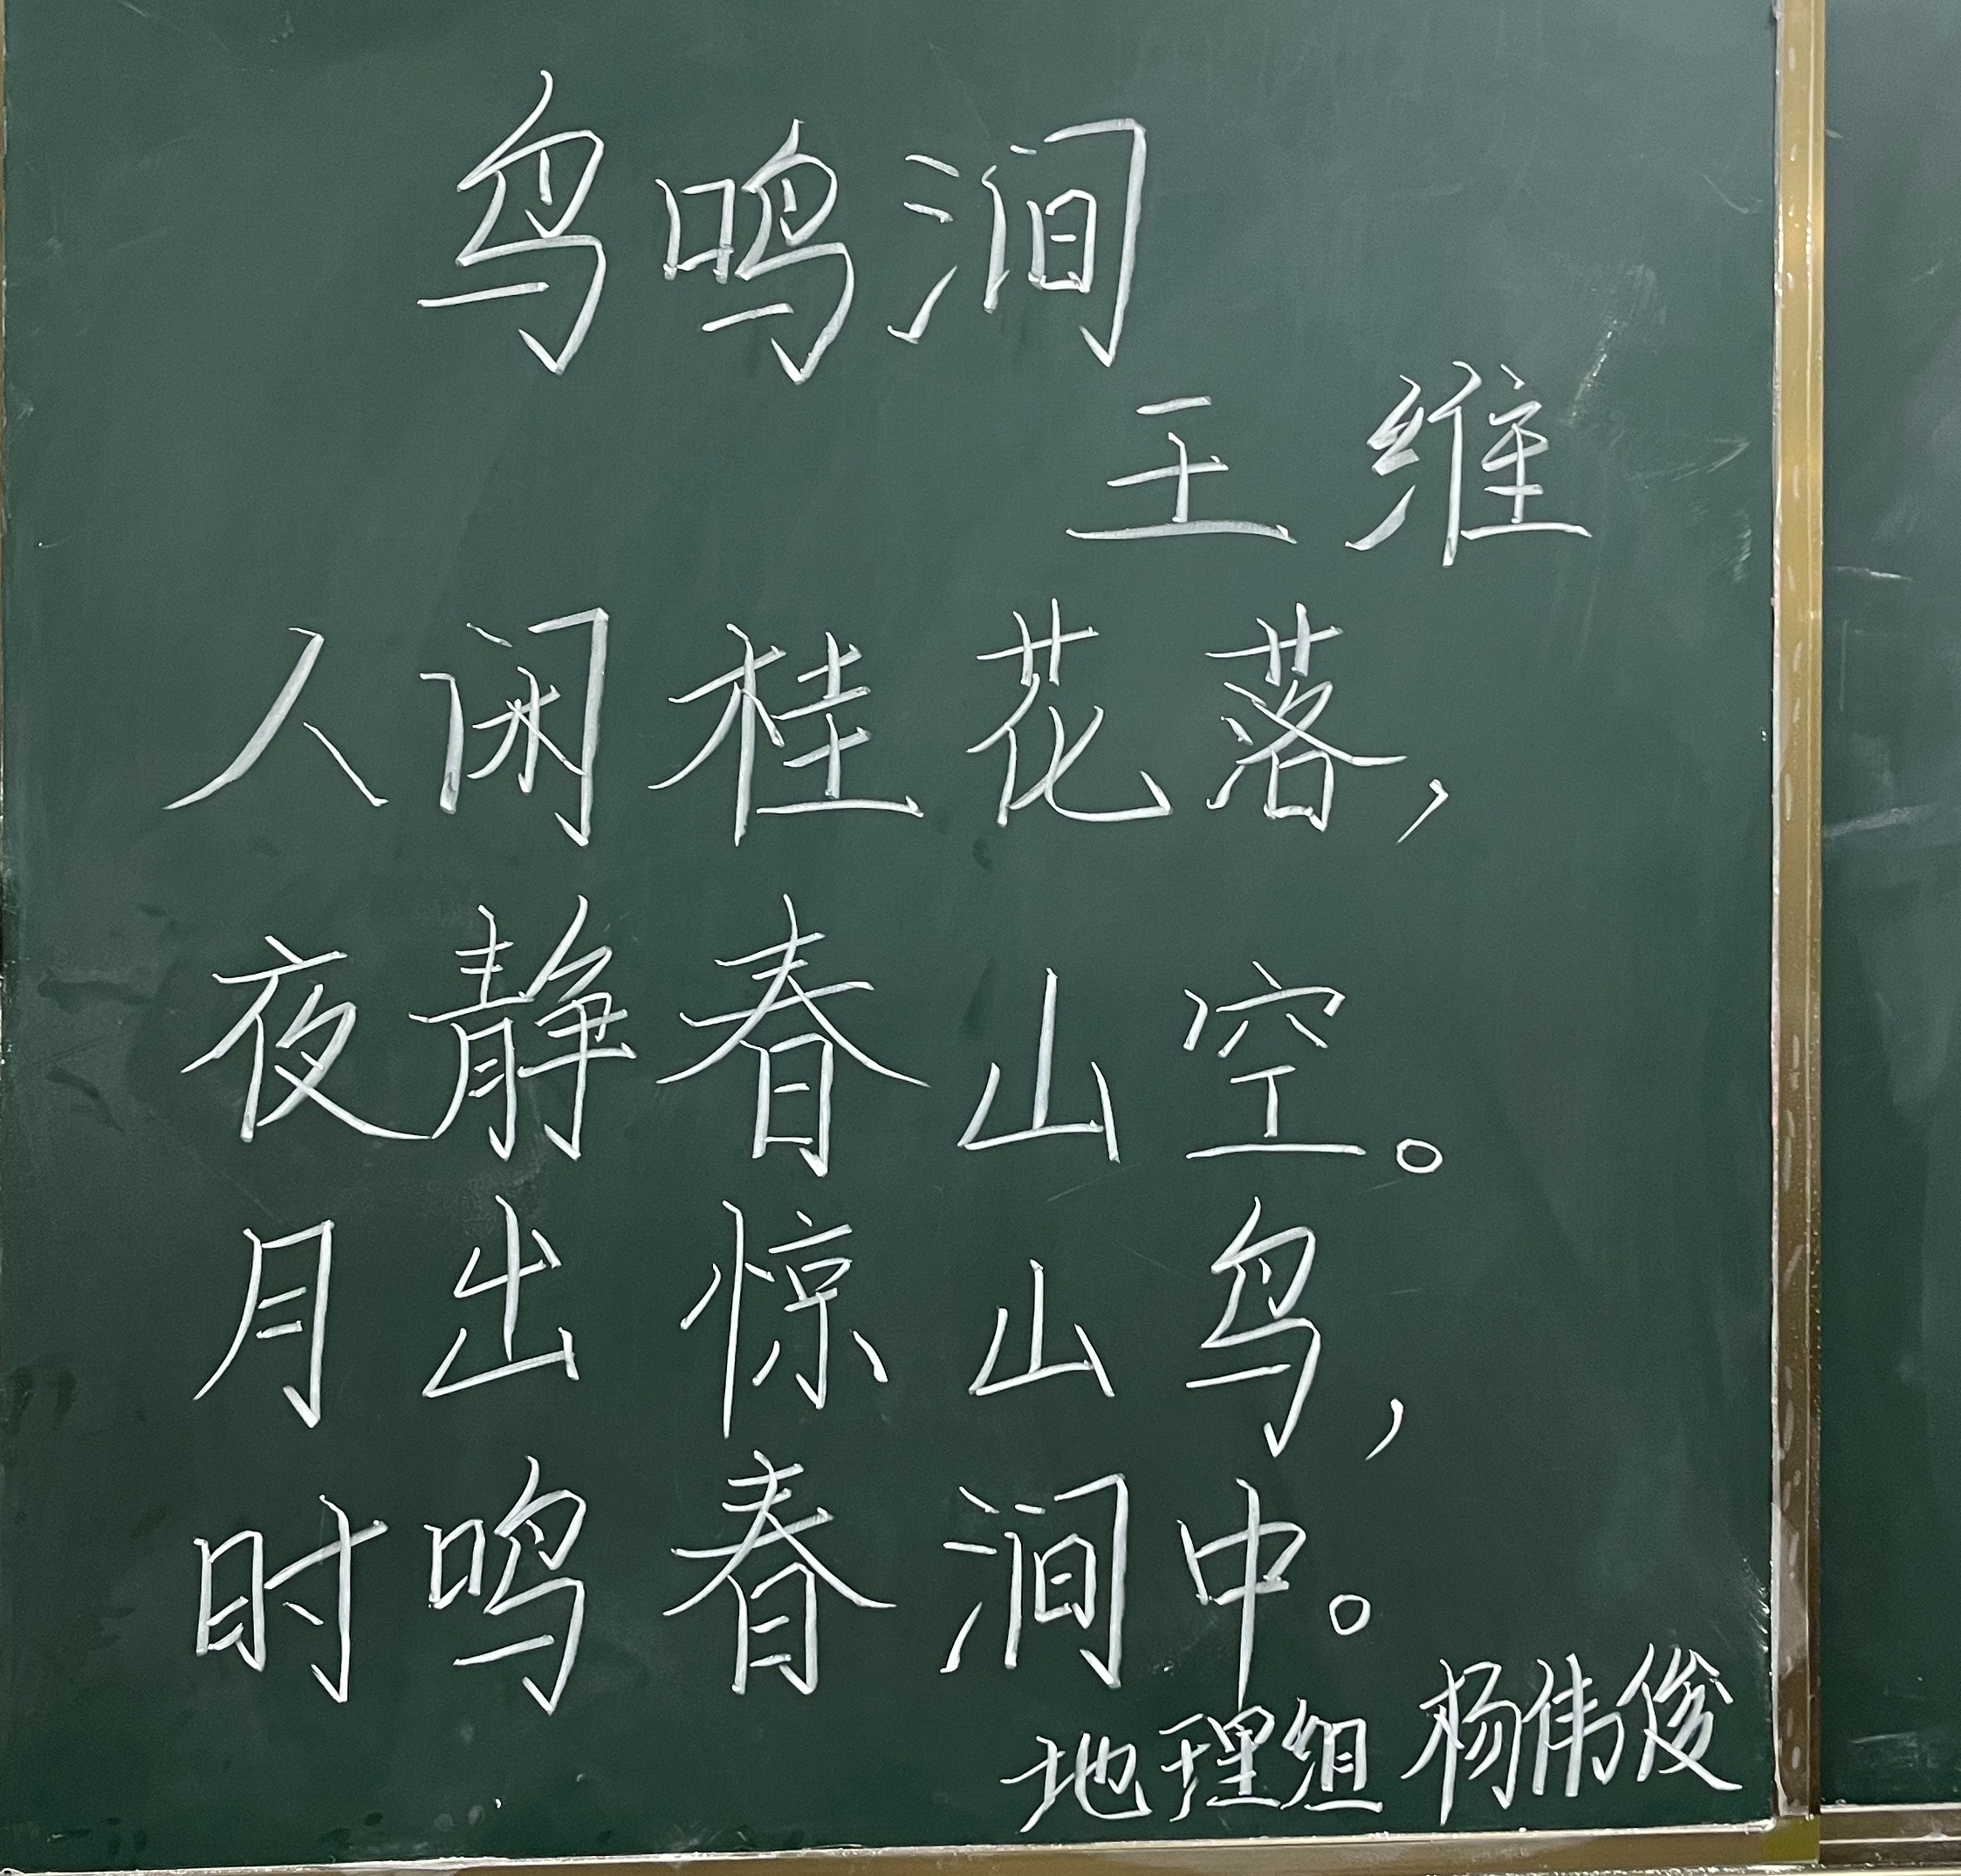 鸟鸣涧
王维
人闲桂花落，
夜静春山空。
月出惊山鸟，
时鸣春涧中。
地理组 杨伟俊